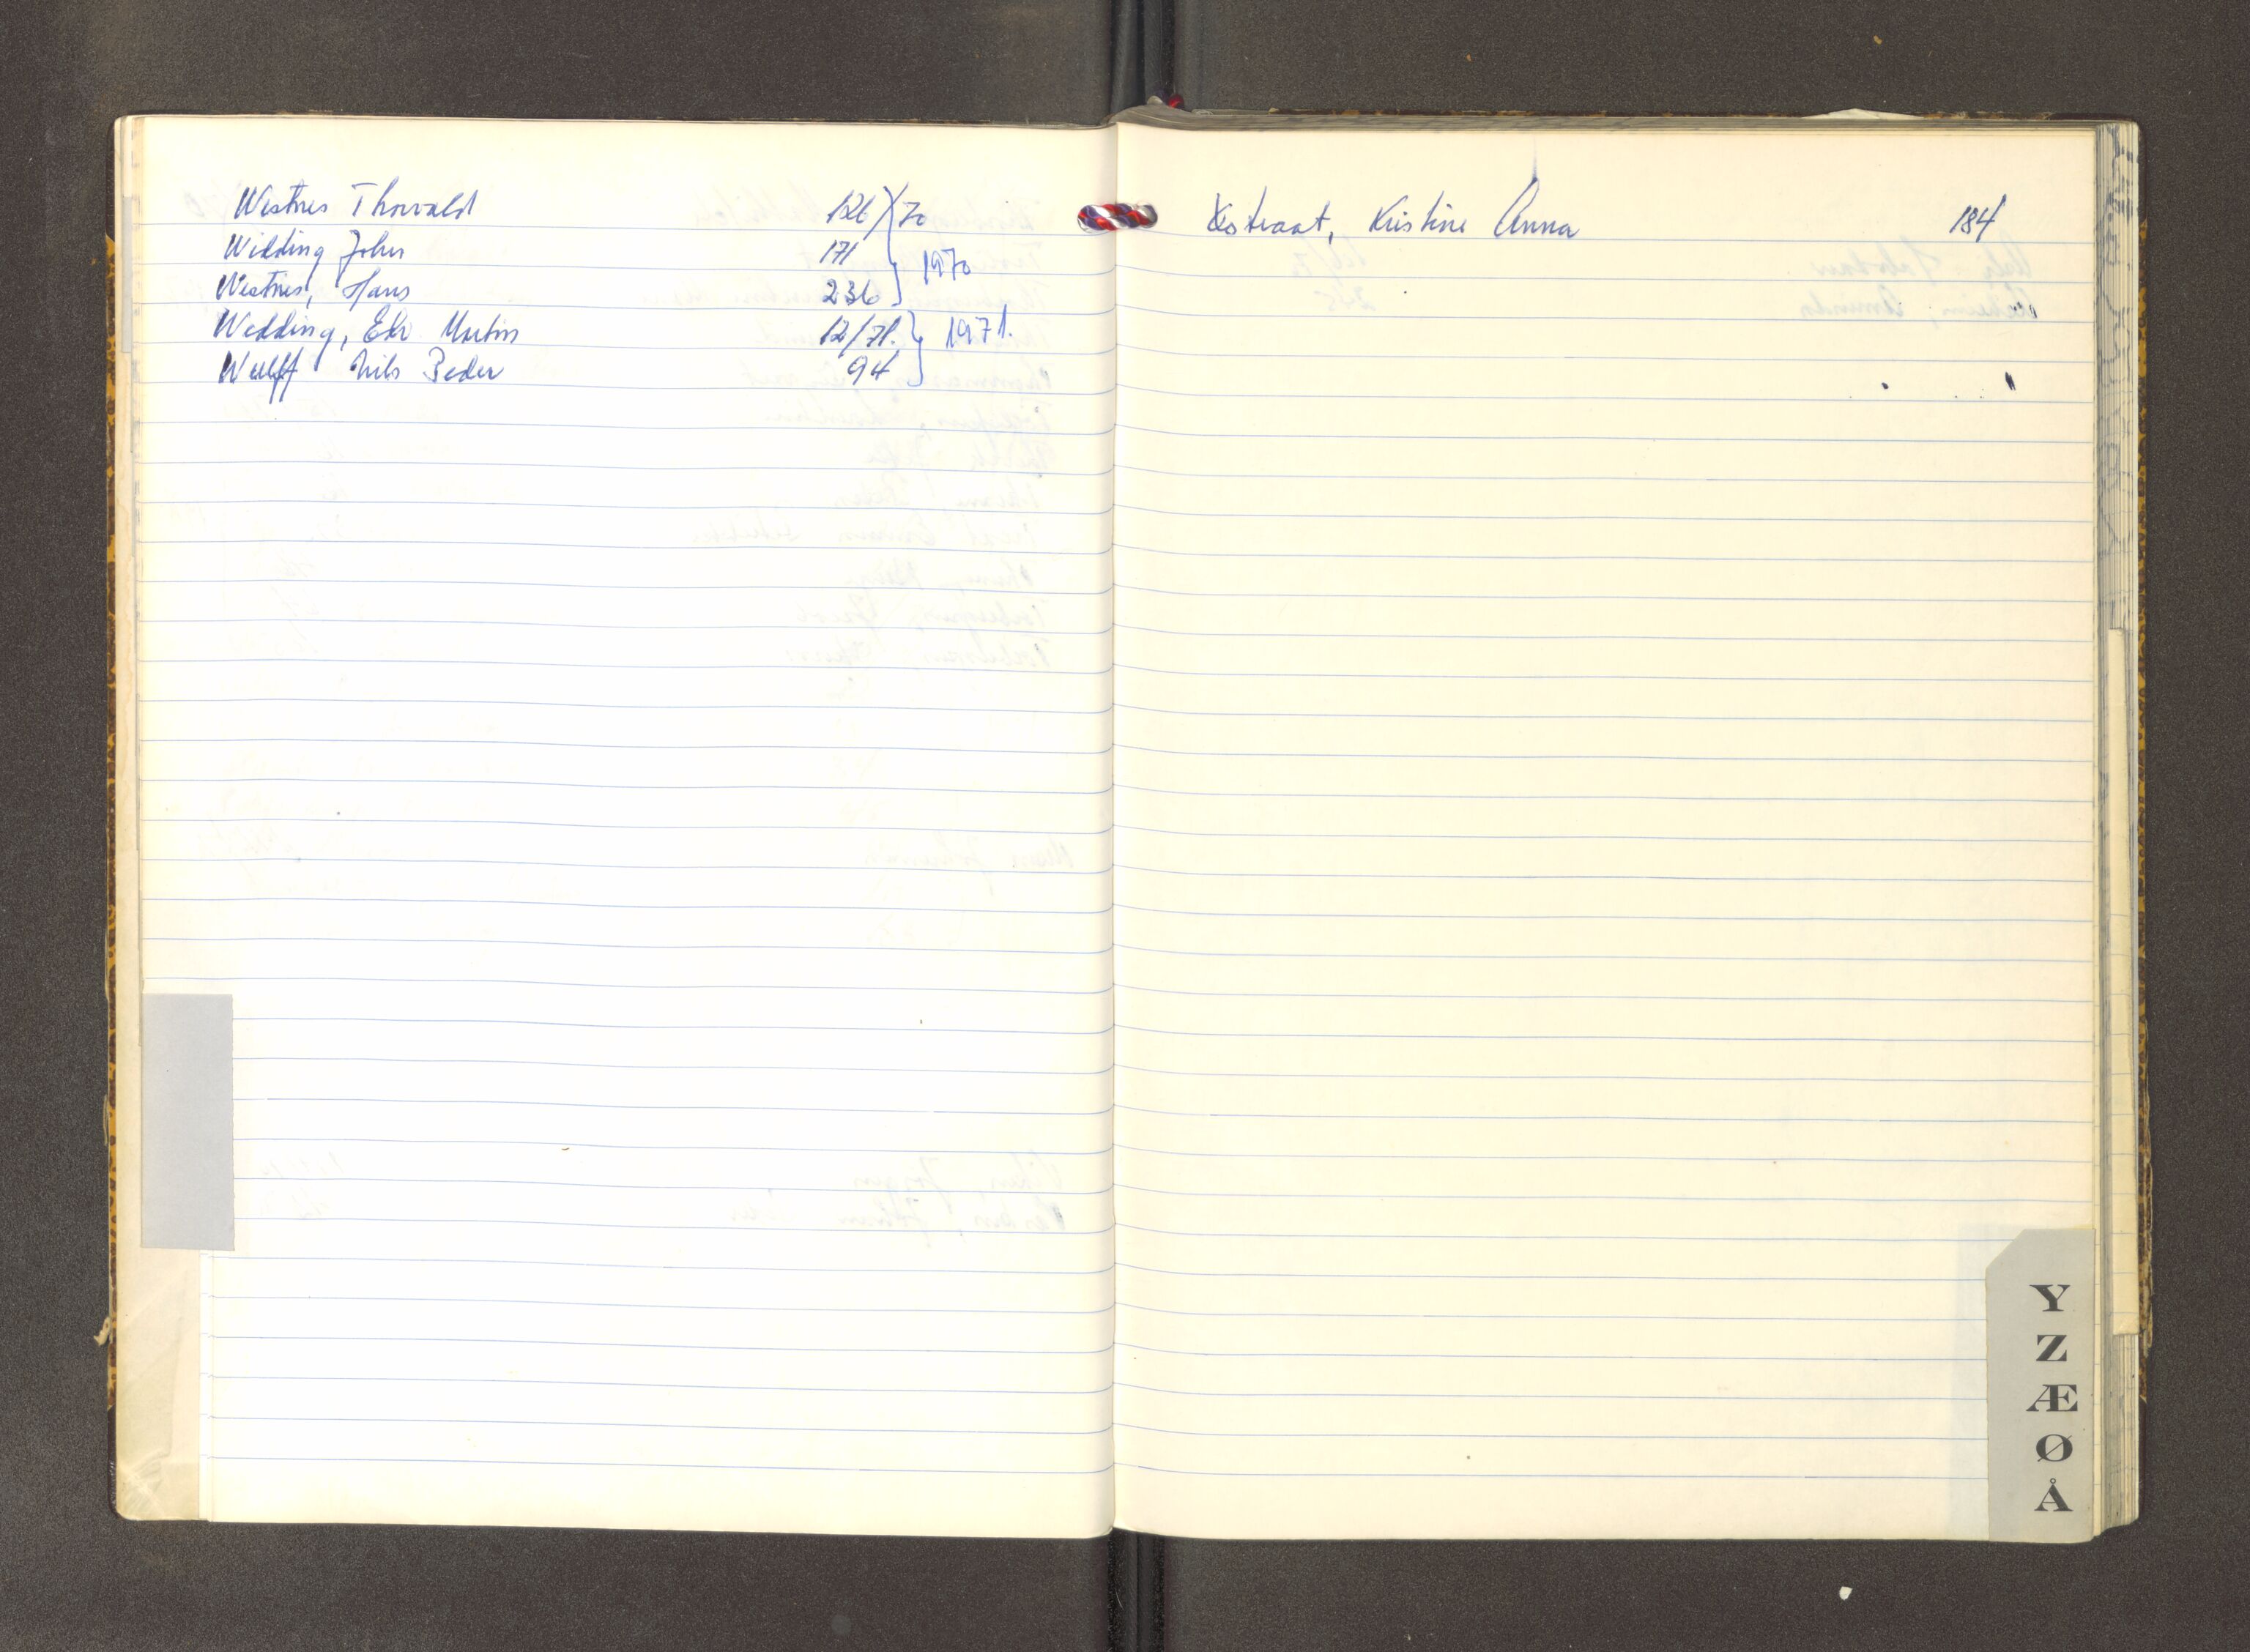 Westnes Thorvald 126/70
Widding John 171
1970
Westnes, Hans 236
Wedding, Edv. Martin 12/71. 1971.
Wulff Nils Peder 94
Kristine Anna 184
Y
Z
Æ
Ø
Å